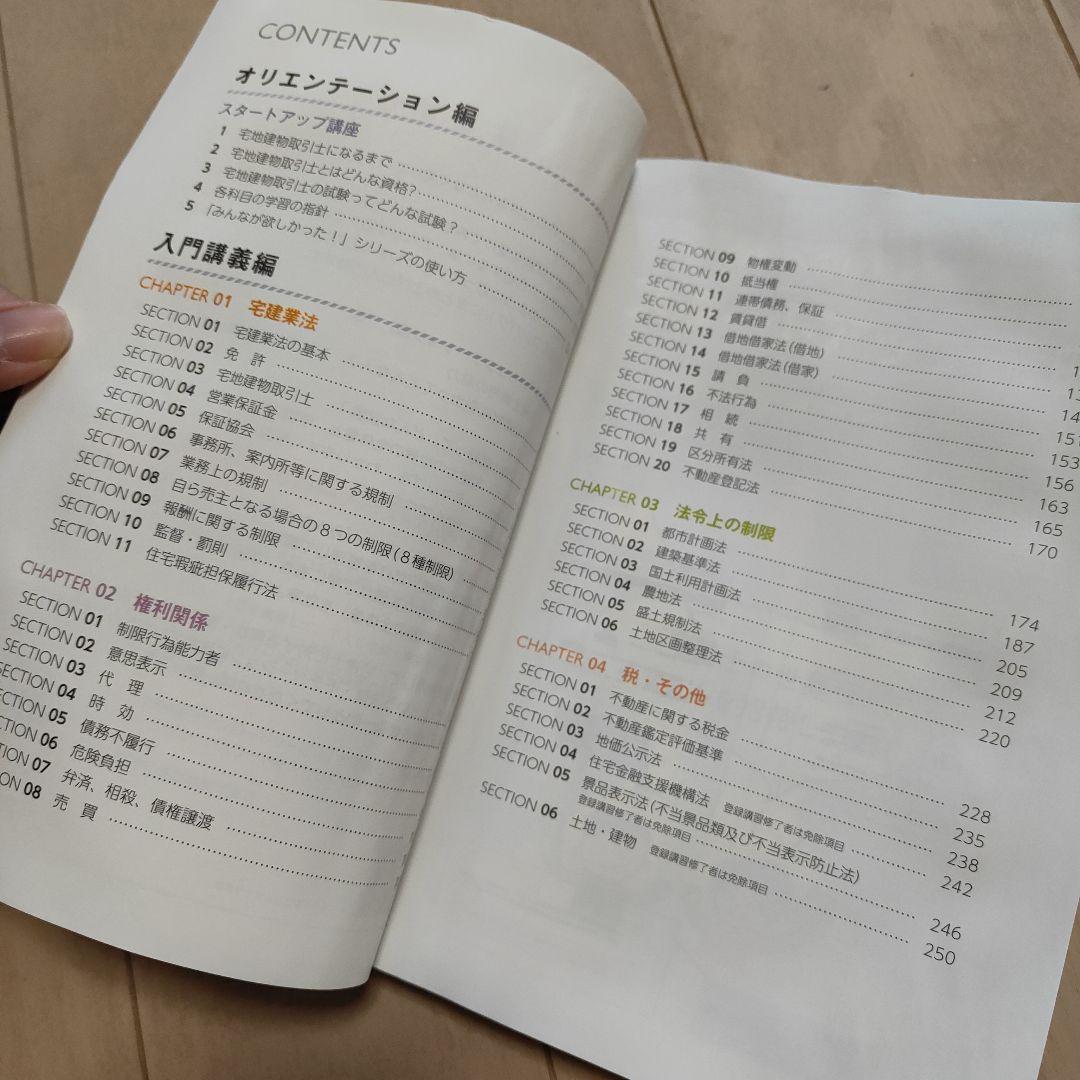 CONTENTS
オリエンテーション編
スタートアップ講座
1 宅地建物取引士になるまで
2 宅地建物取引士とはどんな資格?
3 宅地建物取引士の試験ってどんな試験?
4 各科目の学習の指針
5 「みんなが欲しかった!」シリーズの使い方
入門講義編
CHAPTER 01 宅建業法
SECTION 01 宅建業法の基本
SECTION 02 免許
SECTION 03 宅地建物取引士
SECTION 04 営業保証金
SECTION 05 保証協会
SECTION 06 事務所、案内所等に関する規制
SECTION 07 業務上の規制
SECTION 08 自ら売主となる場合の8つの制限(8種制限)
SECTION 09 報酬に関する制限
SECTION 10 監督・罰則
SECTION 11 住宅瑕疵担保履行法
CHAPTER 02 権利関係
SECTION 01 制限行為能力者
SECTION 02 意思表示
SECTION 03 代理
SECTION 04 時効
SECTION 05 債務不履行
SECTION 06 危険負担
ION 07 弁済、相殺、債権譲渡
ON 08 売買
SECTION 09 物権変動
SECTION 10 抵当権
SECTION 11 連帯債務、保証
SECTION 12 賃貸借
SECTION 13 借地借家法(借地)
SECTION 14 借地借家法(借家)
SECTION 15 請負
SECTION 16 不法行為
SECTION 17 相続 153
SECTION 18 共有 156
SECTION 19 区分所有法 163
SECTION 20 不動産登記法 165
170
CHAPTER 03 法令上の制限
SECTION 01 都市計画法 174
SECTION 02 建築基準法 187
SECTION 03 国土利用計画法 205
SECTION 04 農地法 209
SECTION 05 盛土規制法 212
SECTION 06 土地区画整理法 220
CHAPTER 04 税・その他
SECTION 01 不動産に関する税金 228
SECTION 02 不動産鑑定評価基準 235
SECTION 03 地価公示法 238
SECTION 04 住宅金融支援機構法 登録講習修了者は免除項目 242
SECTION 05 景品表示法(不当景品類及び不当表示防止法)
登録講習修了者は免除項目 246
SECTION 06 土地・建物 登録講習修了者は免除項目 250